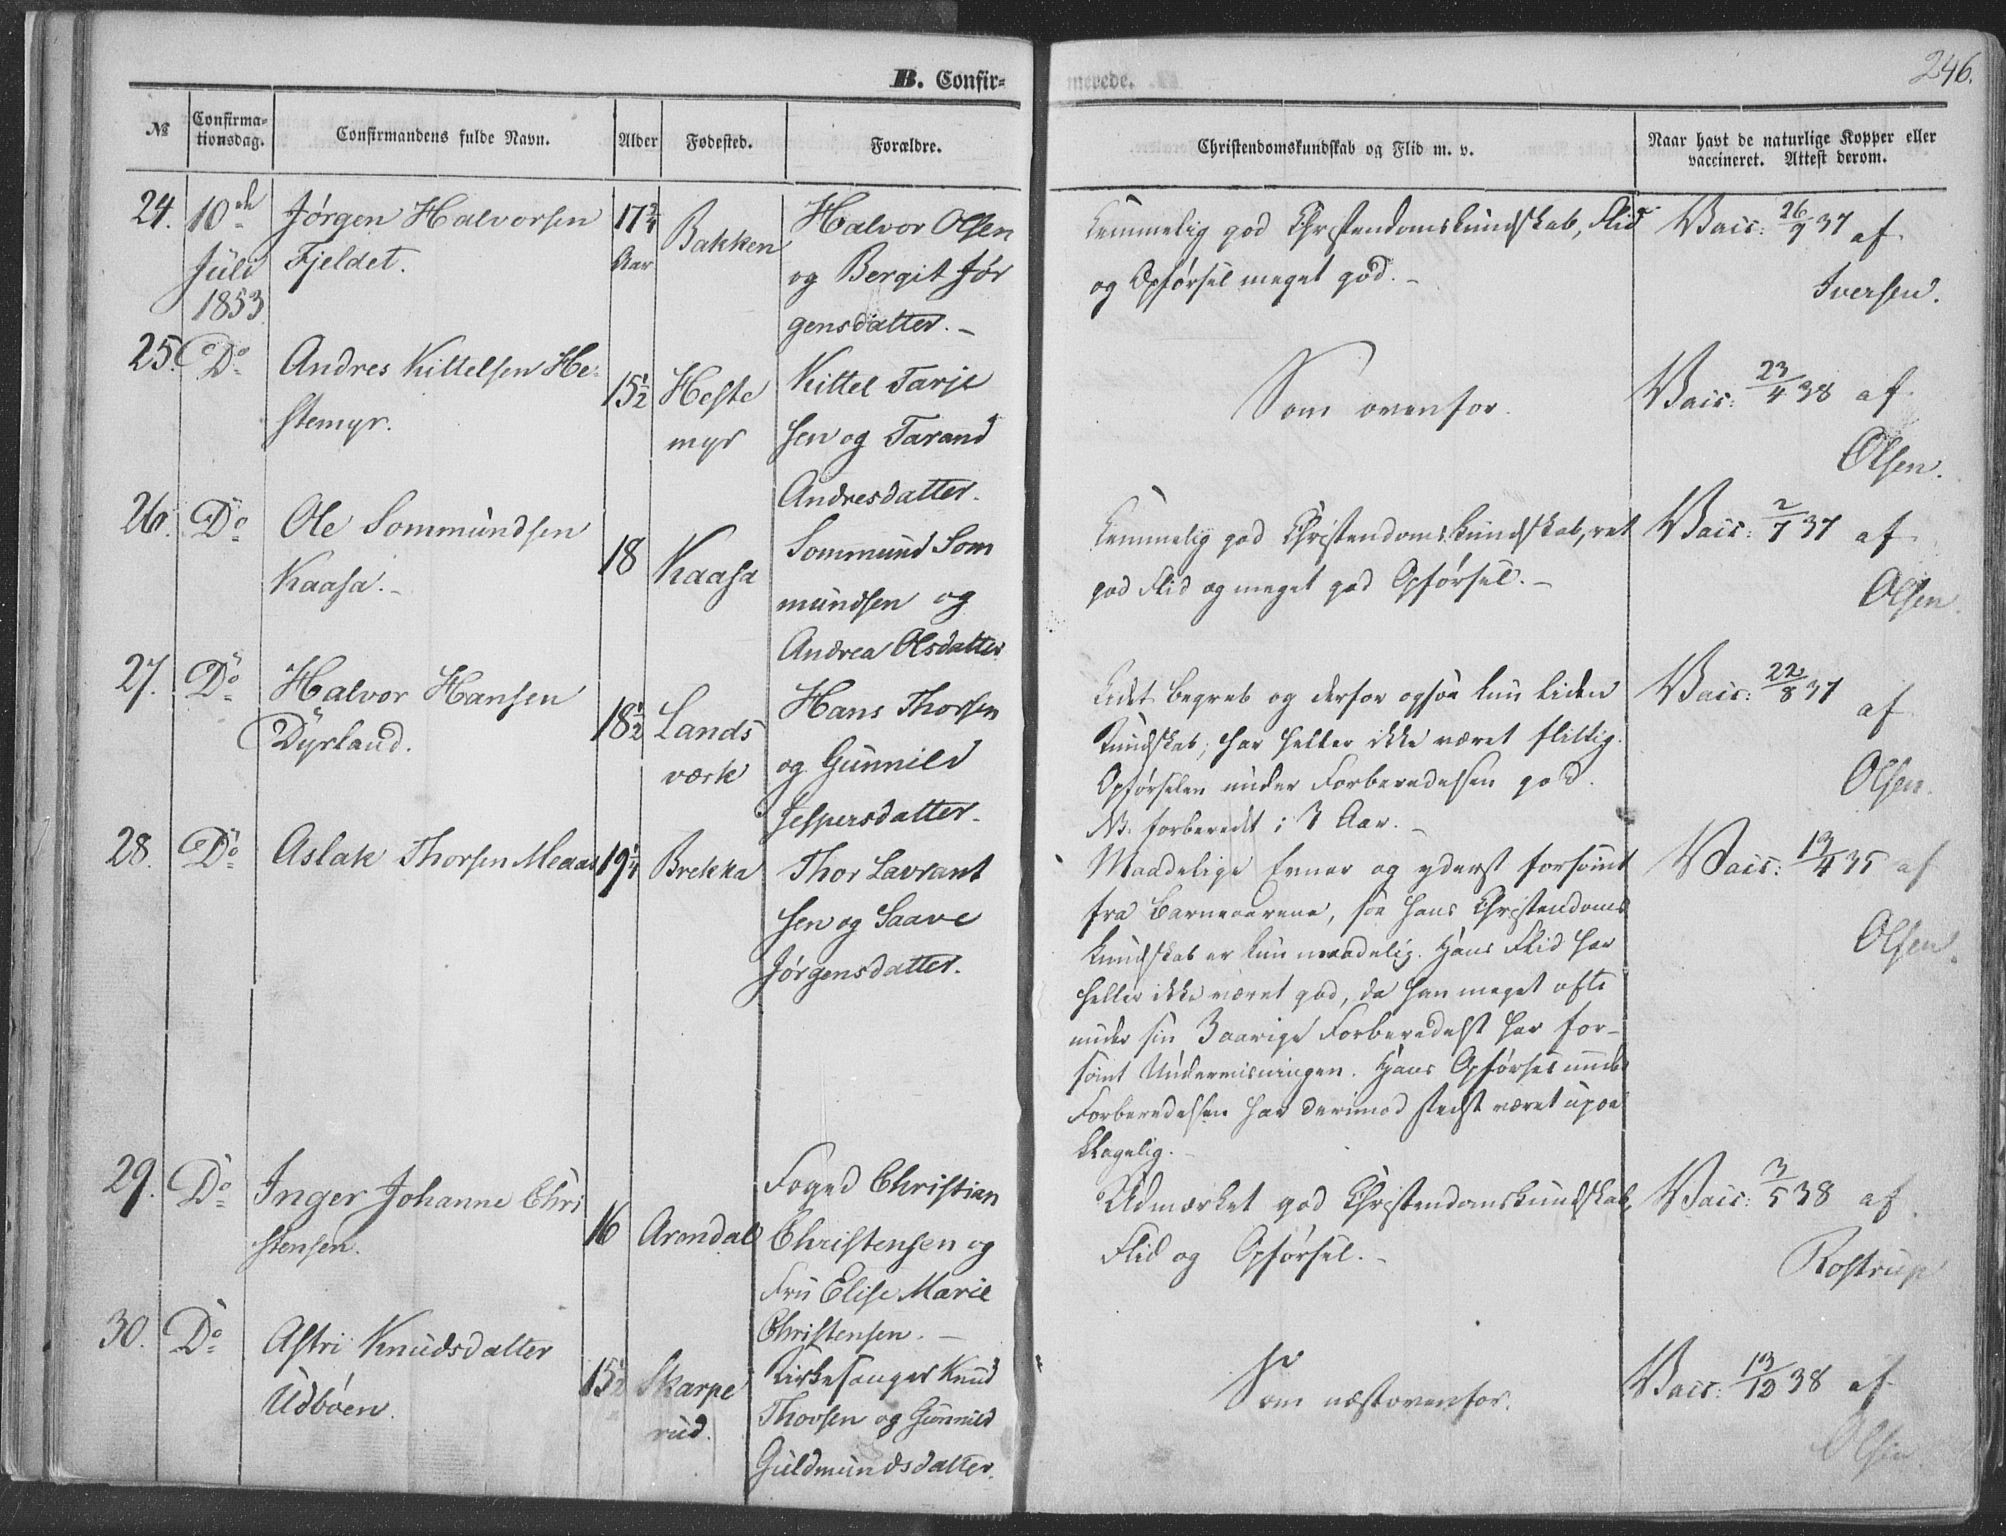 B. Confir-
merede.
246.
№
Confirma-
tionsdag.
Confirmandens fulde Navn.
Alder
Fødested.
Forældre.
Christendomskundskab og Flid m. v.
Naar havt de naturlige Kopper eller
vaccineret. Attest derom.
24.
10de
Juli
1853
Jørgen Halvorsen
Fjeldet.
17 3/4
Aar
Bakken
Halvor Olsen
og Bergit Jør
gensdatter. –
temmelig god Christendomskundskab, Flid
og Opførsel meget god. –
Vacc: 26/9 37 af
Iversen.
25.
Do
Andres Kittelsen He-
stemyr.
15 1/2
Heste
myr
Kittel Tarje
sen og Tarand
Andresdatter.
Som ovenfor.
Vacc: 23/4 38 af
Olsen.
26.
Do
Ole Sommundsen
Kaasa. –
18
Kaasa
Sommund Som
mundsen og
Andrea Olsdatter
temmelig god Christendomskundskab, ret
god Flid og meget god Opførsel. –
Vacc: 2/7 37 af
Olsen.
27.
Do
Halvor Hansen
Dyrland.
18 1/2
Lands
værk
Hans Thorsen
og Gunnild
Jespersdatter.
Lidt Begreb og derfor ogsaa kun liden
Kundskab; har heller ikke været flittig.
Opførselen under Forberedelsen god.
NB. forberedt i 3 Aar. –
Vacc: 22/8 37
af
Olsen.
28.
Do
Aslak Thorsen Meaas
19 1/4
Brekka
Thor Lavrant
sen og Saave
Jørgensdatter.
Maadelige Evner og yderst forsømt
fra Barneaarene, saa hans Christendoms
kundskab er kun maadelig. Hans Flid har
heller ikke været god, da han meget ofte
under sin 3aarige Forberedelse har for-
sømt Undervisningen. Hans Opførsel under
Forberedelsen har derimod stedse været upaa
klagelig. –
Vacc: 13/4 35 af
Olsen.
29.
Do
Inger Johanne Chri
stensen.
16
Arendal
Foged Christian
Christensen og
Fru Elise Marie
Christensen. –
Udmærket god Christendomskundskab,
Flid og Opførsel. –
Vacc: 3/5 38 af
Rostrup
30.
Do
Astri Knudsdatter
Udbøen.
15 1/2
Skarpe
rud.
Kirkesanger Knud
Thorsen og Gunnild
Guldmundsdatter.
Som næstovenfor.
Vacc: 13/12 38 af
Olsen.